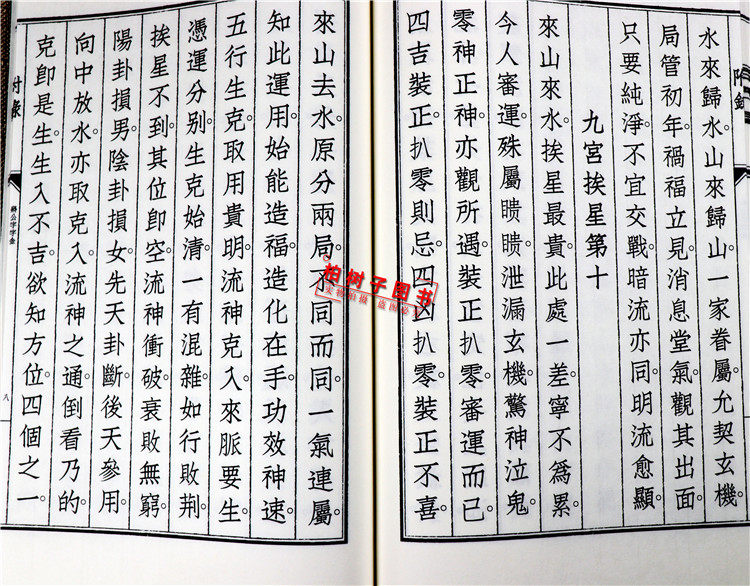 水來歸水。山來歸山。一家眷屬。允契玄機。
局管初年。禍福立見。消息堂氣。觀其出面。
只要純淨。不宜交戰。暗流亦同。明流愈顯。
九宮挨星第十
來山來水。挨星最貴。此處一差。寧不為累。
今人審運。殊屬瞆瞆。泄漏玄機。驚神泣鬼。
零神正神。亦觀所遇。裝正扒零。審運而已。
四吉裝正。扒零則忌。四凶扒零。裝正不喜。
來山去水。原分兩局。不同而同。一氣連屬。
知此運用。始能造福。造化在手。功效神速。
五行生克。取用貴明。流神克入。來脈要生。
憑運分別。生克始清。一有混雜。如行敗荆。
挨星不到。其位即空。流神衝破。衰敗無窮。
陽卦損男。陰卦損女。先天卦斷。後天參用。
向中放水。亦取克入。流神之通。倒看乃的。
克即是生。生入不吉。欲知方位。四個之一。
蔣公字字金
八
柏树子图书
实物拍摄 盗图必究